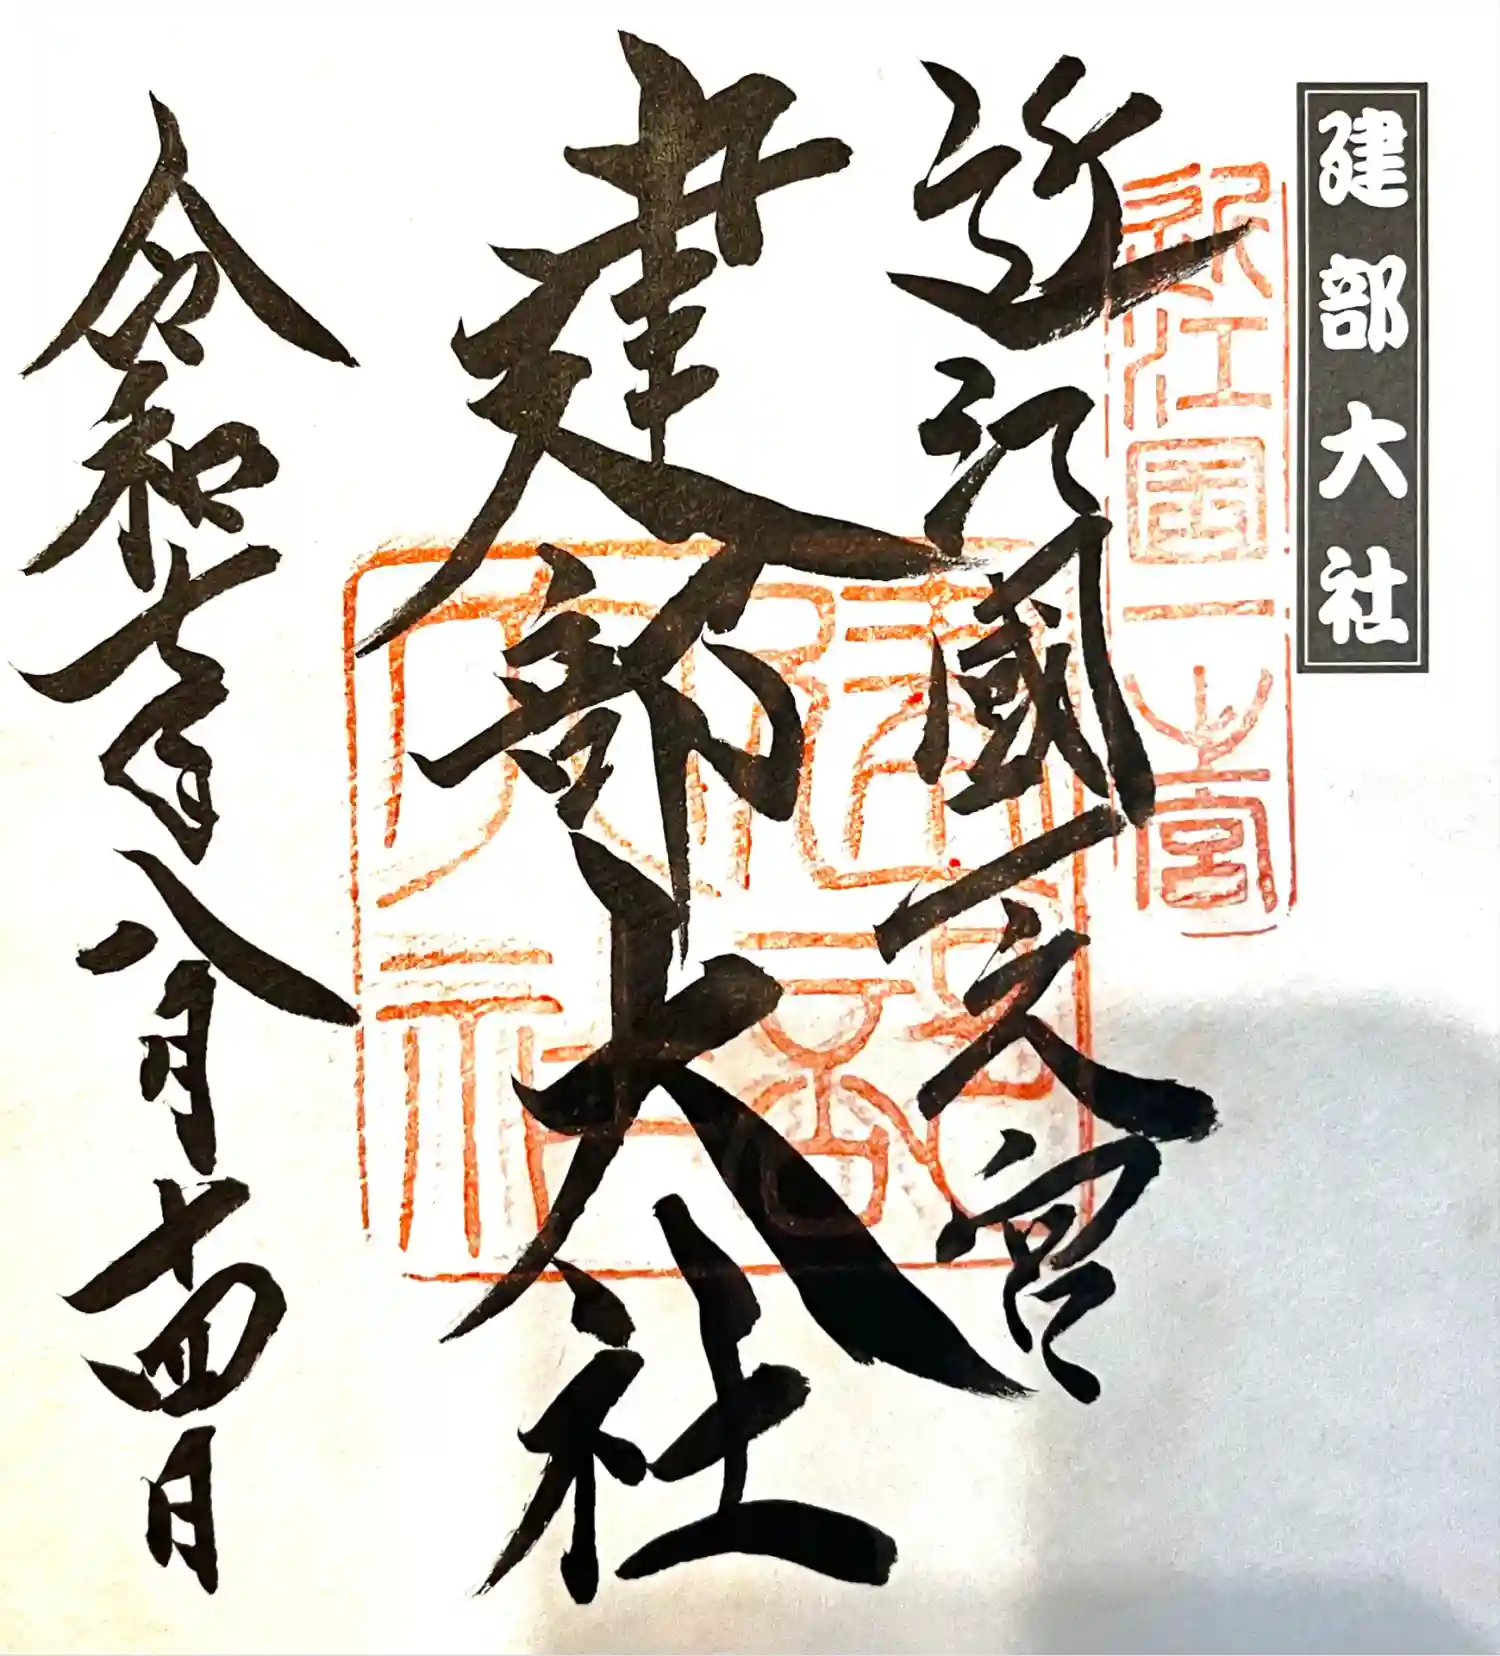 建部大社
近江國一之宮
近江國一之宮
建部大社
建部
大社
令和七年八月十四日